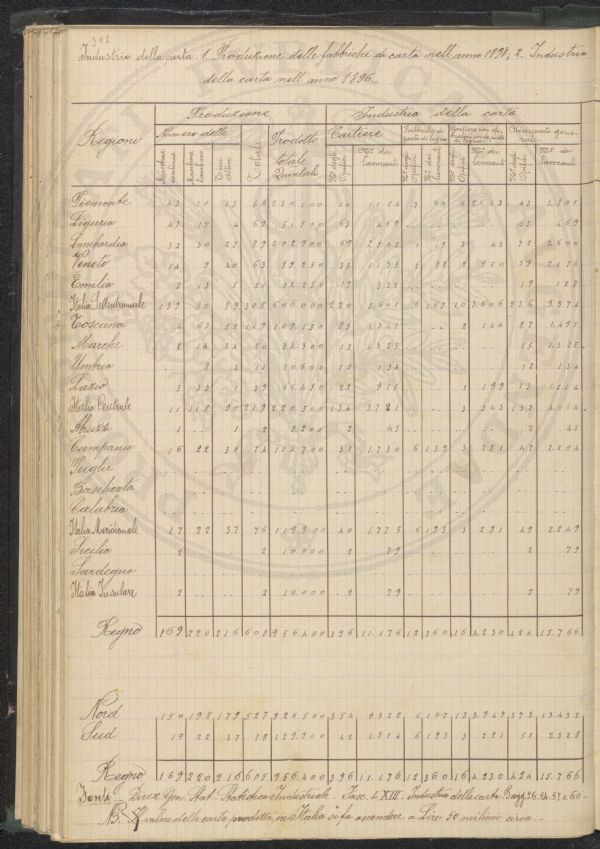 Industria della carta: 1. Produzione delle fabbriche di carta nell'anno 1898; 2. Industria
della carta nell'anno 1896.
Regioni Produzione Industria della carta
Numero delle Totale Prodotto totale Quintali Cartiere Riassunto generale
Macchine continue Macchine tamburo Tini attivi N.º degli Opifici N.º dei lavoranti N.º degli Opifici N.º dei lavoranti N.º degli Opifici N.º dei lavoranti N.º degli Opifici N.º dei lavoranti
Piemonte 13 10 43 66 230.100
Liguria 47 18 4 69 51.500 63 469 63 469
Lombardia 32 30 27 89 202.900 69 2.542 1 15 2 43 72 2.600
Veneto 14 9 40 63 89.250 35 1 38 2 950 39
Emilia 3 13 5 21 32.250 19 19 328
Italia Settentrionale 139 80 89 308 606.000 220 5.601 6 167 10 3.606 236 9.374
Toscana 4 63 52 119 109.150 85 1.347 .. .. 2 144 87 1.491
Marche 2 14 34 50 34.300 15 1.325 .. .. .. .. 15 1.325
Umbria .. 8 3 11 10.600 12 134 .. .. .. .. 12 134
Lazio 5 33 1 39 66.450 22 915 .. .. 1 199 23 1.114
Italia Centrale 11 118 90 219 220.500 134 3.721 .. .. 3 343 137 4.064
Abruzzi 1 .. 1 2 5.200 2 45 .. .. .. .. 2 45
Campania 16 22 36 74 114.700 38 1.730 6 193 3 281 47 2.204
Puglie
Basilicata
Calabria
Italia Meridionale 17 22 37 76 119.900 40 1.775 6 193 3 281 49 2.249
Sicilia 2 .. .. 2 10.000 2 79 .. .. .. .. 2 79
Sardegna
Italia Insulare 2 .. .. 2 10.000 2 79 .. .. .. .. 2 79
Regno 169 220 216 605 956.400 396 11.176 12 360 16 4.230 424 15.766
Nord 150 198 179 527 826.500 354 9.322 6 167 13 3.949 373 13.438
Sud 19 22 37 78 129.900 42 1854 6 193 3 281 51 2328
Regno 169 220 216 605 956.400 396 11.176 12 360 16 4.230 424 15.766
Fonti. Direz. Gen. Stat. Statistica Industriale. Fasc. LXIII. Industria della carta. Pagg. 26. 54. 57 e 60.
NB. Il valore della carta prodotta in Italia si fa ascendere a Lire 50 milioni circa.